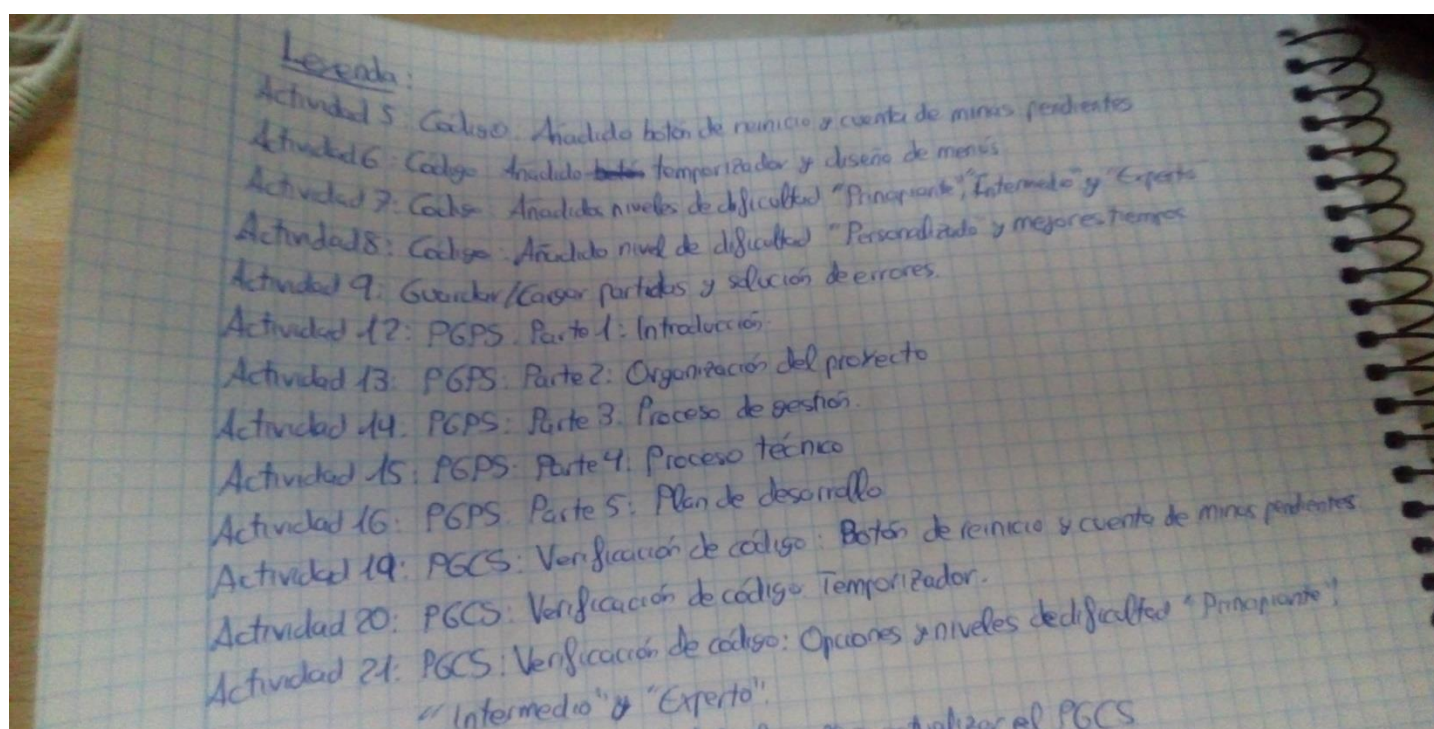 Leyenda:
Actividad 5: Código: Añadido botón de reinicio y cuenta de minas pendientes
Actividad 6: Código: Añadido botón temporizador y diseño de menús
Actividad 7: Código: Añadidos niveles de dificultad "Principiante", "Intermedio" y "Experto"
Actividad 8: Código: Añadido nivel de dificultad "Personalizado" y mejores tiempos
Actividad 9: Guardar/Cargar partidas y solución de errores.
Actividad 12: PGPS: Parte 1: Introducción
Actividad 13: PGPS: Parte 2: Organización del proyecto
Actividad 14: PGPS: Parte 3: Proceso de gestión.
Actividad 15: PGPS: Parte 4: Proceso técnico
Actividad 16: PGPS: Parte 5: Plan de desarrollo
Actividad 19: PGCS: Verificación de código: Botón de reinicio y cuenta de minas pendientes
Actividad 20: PGCS: Verificación de código Temporizador.
Actividad 21: PGCS: Verificación de código: Opciones y niveles de dificultad "Principiante",
"Intermedio" y "Experto".
el PGCS